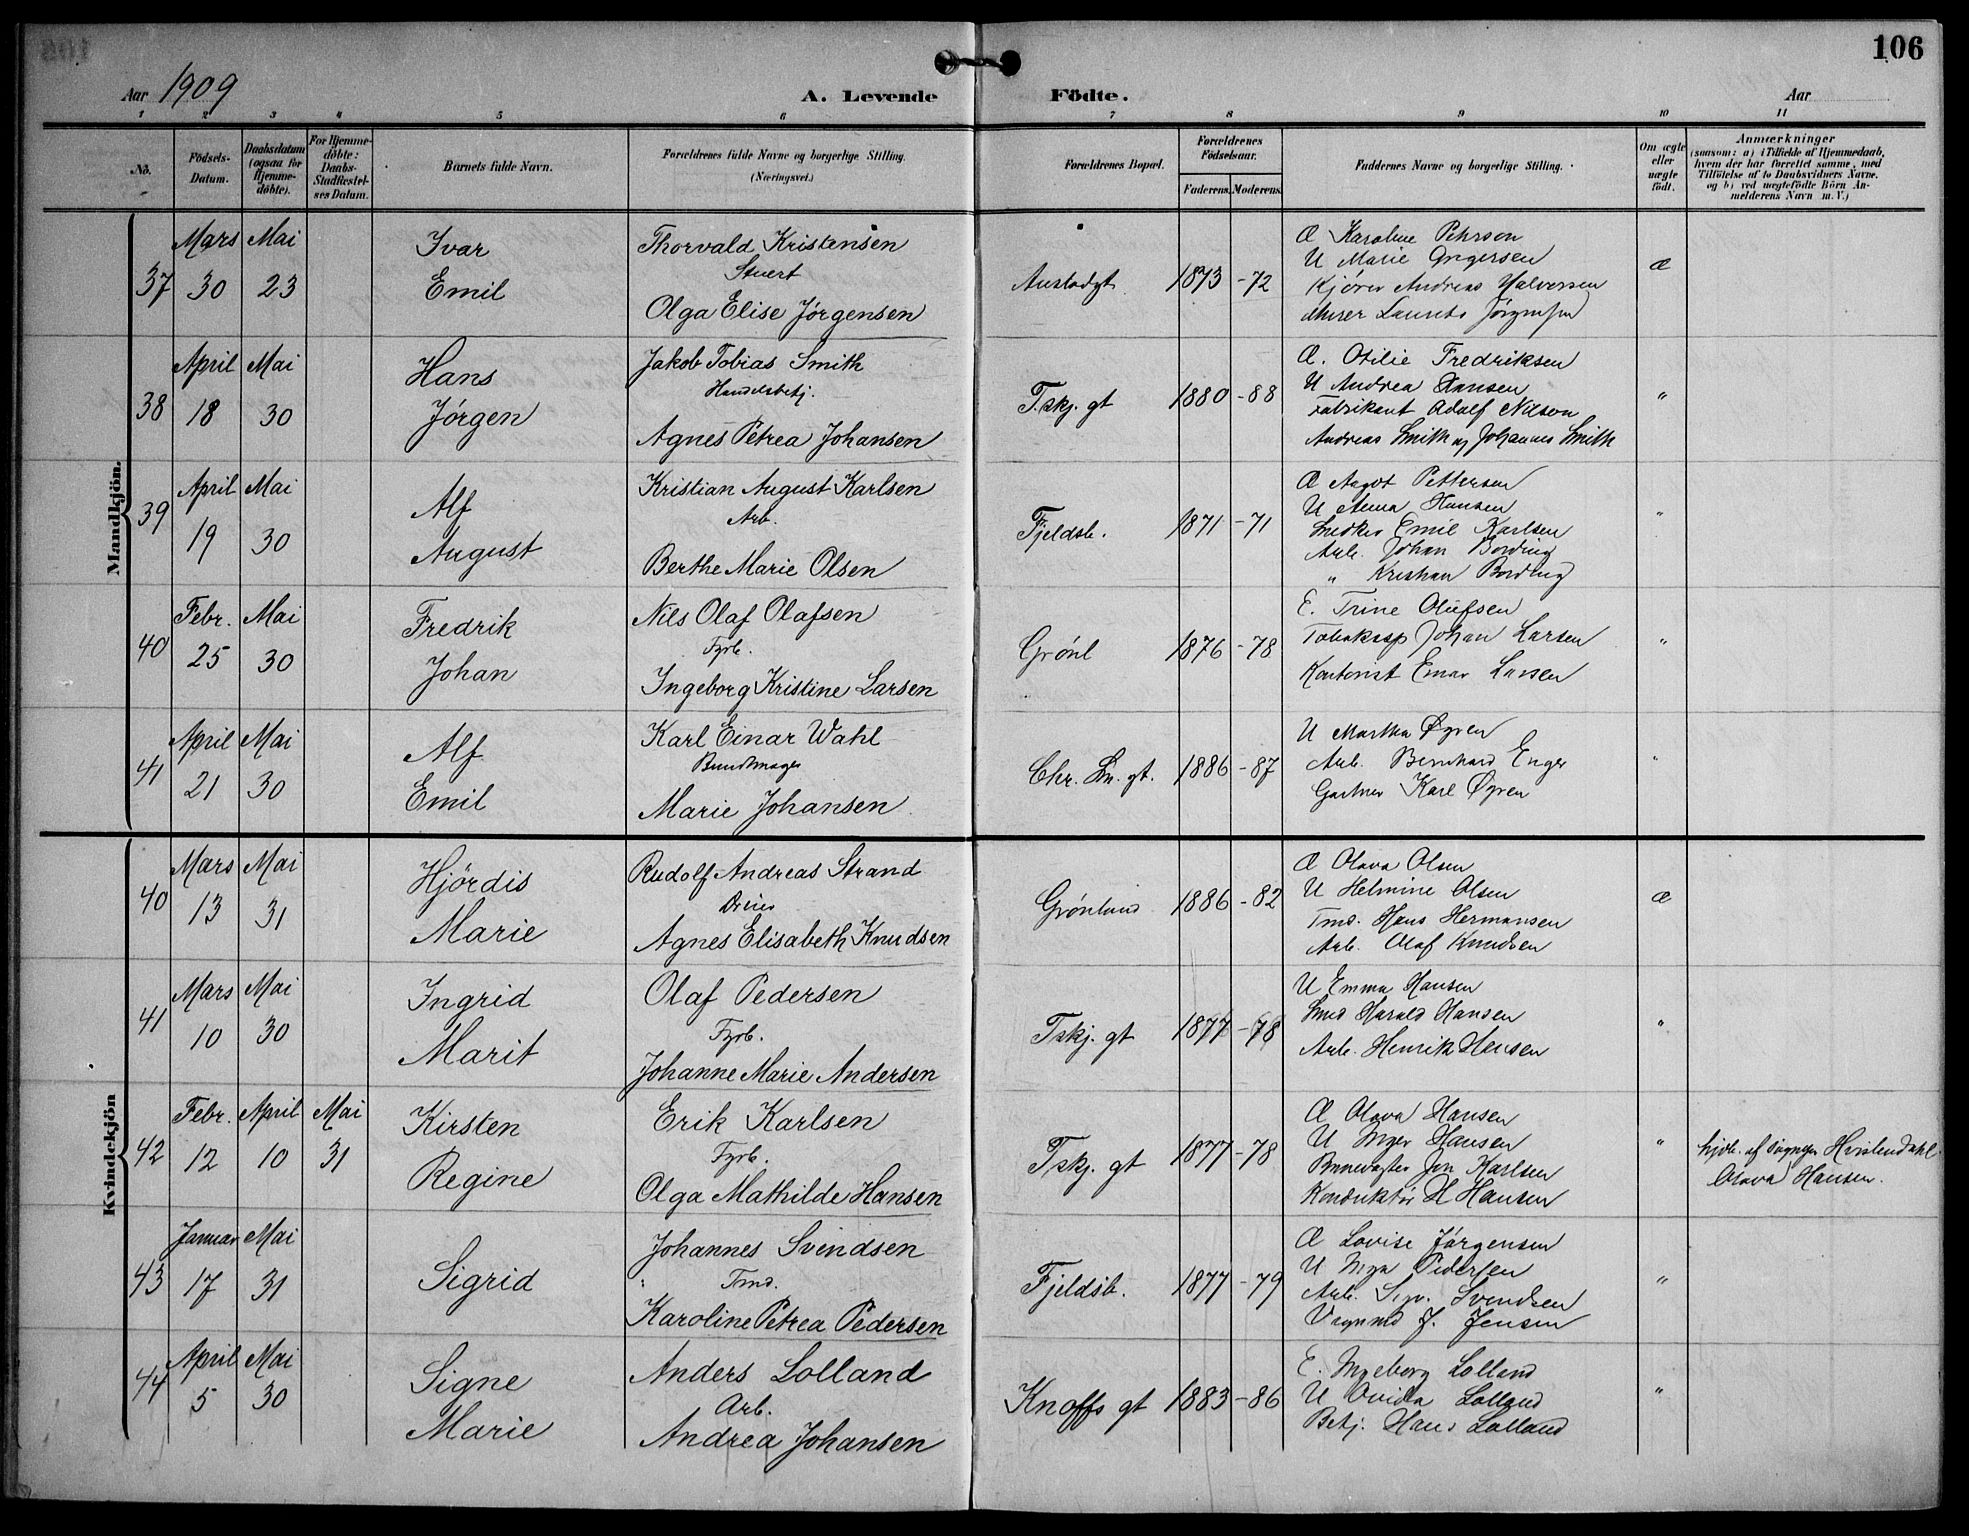 106
Aar 1909
A. Levende Födte.
Aar
1 2 3 4 5 6 7 8 9 10 11
No.
Födsels-Datum.
Daabsdatum (ogsaa for Hjemmedöbte).
For Hjemmedöbte: Daabs-Stadfæstelses Datum.
Barnets fulde Navn.
Forældrenes fulde Navne og borgerlige Stilling. (Næringsvei.)
Forældrenes Bopæl.
Forældrenes Födselsaar.
Faderens. Moderens.
Faddernes Navne og borgerlige Stilling.
Om ægte eller uægte födt.
Anmærkninger
(saasom: a) i Tilfælde af Hjemmedaab, hvem der har forrettet samme, med Tilföielse af to Daabsvidners Navne, og b) ved uægtefödte Börn Anmelderens Navn m. V.)
Mandkjön.
37 Mars 30 Mai 23
Ivar Emil
Thorvald Kristensen
Stuert
Olga Elise Jørgensen
1873 -72
Æ Karoline Pehrson
U Marie
Kjører Andreas Halvorsen
Murer Laurits Jørgensen
Æ
38 April 18 Mai 30
Hans Jørgen
Jakob Tobias Smith
Handelsbetj.
Agnes Petrea Johansen
T.skj. gt
1880 -88
Æ. Otilie Fredriksen
U Andrea Hansen
Fabrikant Adolf Nilson
Andreas Smith og Johannes Smith
"
39 April 19 Mai 30
Alf August
Kristian August Karlsen
Arb.
Berthe Marie Olsen
Fjeldsb.
1871 -71
Æ Aagot Pettersen
U Anna Hansen
Emil Karlsen
Arb. Johan Bording
" Kristian Bording
"
40 Febr. 25 Mai 30
Fredrik Johan
Nils Olaf Olafsen
Fyrb.
Ingeborg Kristine Larsen
Grønl
1876 -78
E. Trine Olufsen
Johan Larsen
Kontorist Einar Larsen
"
41 April 21 Mai 30
Alf Emil
Karl Einar Wahl
Bundtmager
Marie Johansen
Chr. Sn. gt.
1886 -87
U Martha Øyren
Arb. Bernhard Enger
Gartner Karl Øyren
"
Kvindekjön
40 Mars 13 Mai 31
Hjørdis Marie
Rudolf Andreas Strand
Dreier
Agnes Elisabeth Knudsen
Grønland
1886 -82
Æ Olava Olsen
U Helmine Olsen
Tmd. Hans Hermansen
Arb. Olaf Knudsen
Æ
41 Mars 10 Mai 30
Ingrid Marit
Olaf Pedersen
Fyrb.
Johanne Marie Andersen
Tskj. gt
1877 -78
U Emma Hansen
Smed Harald Hansen
Arb. Henrik Hansen
"
42 Febr. 12 April 10 Mai 31
Kirsten Regine
Erik Karlsen
Fyrb.
Olga Mathilde Hansen
Tskj. gt
1877 -78
Æ Olava Hansen
U Inger Hansen
Jon Karlsen
Konduktør H Hansen
"
hjdb. af Hvislendahl
Olava Hansen.
43 Januar 17 Mai 31
Sigrid
Johannes Svendsen
Tmd.
Karoline Petrea Pedersen
Fjeldsb.
1877 -79
Æ Lovise Jørgensen
U Inga Pedersen
Arb. Svendsen
Vognmd J. Jensen
"
44 April 5 Mai 30
Signe Marie
Anders Lolland
Arb.
Andrea Johansen
Knoffs gt
1883 -86
E. Ingeborg Lolland
U Ovida Lolland
Betj. Hans Lolland
"